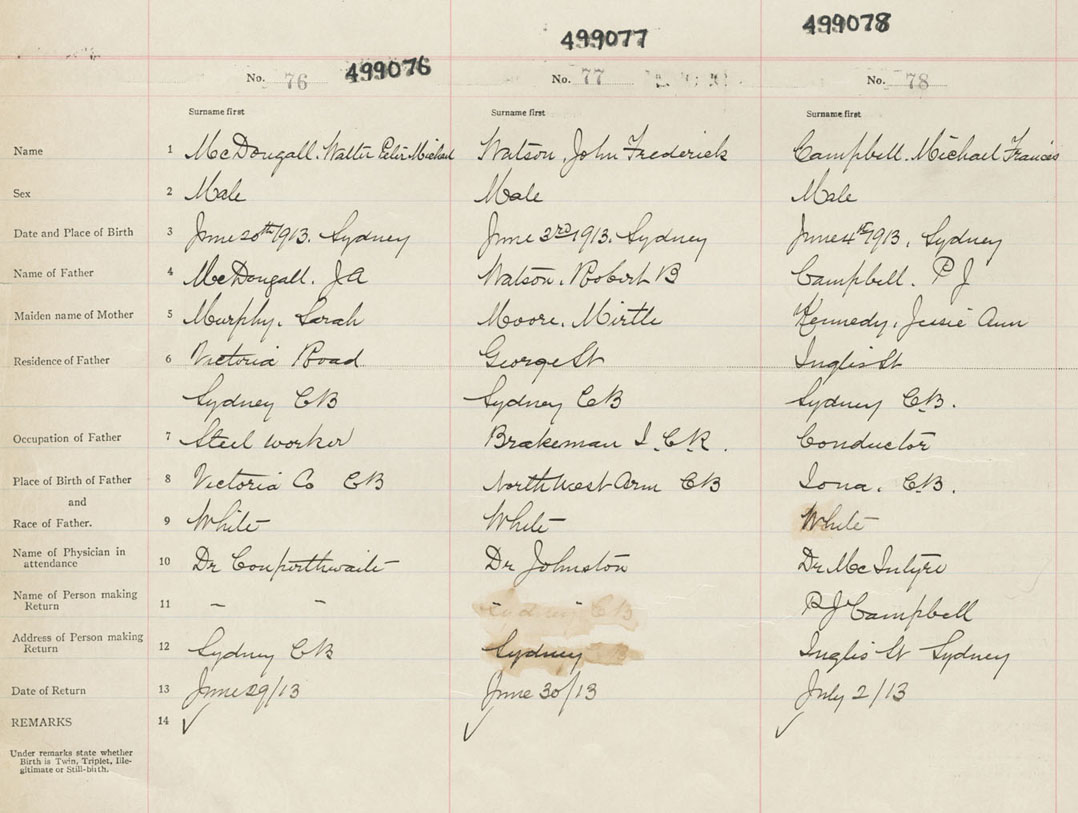 499076 499077 499078
No. 76 No. 77 No. 78
Surname first Surname first Surname first
Name 1 McDougall. Walter Peter Michael Watson, John Frederick Campbell. Michael Francis
Sex 2 Male Male Male
Date and Place of Birth 3 June 20th 1913. Sydney June 3rd 1913. Sydney June 4th 1913, Sydney
Name of Father 4 McDougall. J A Watson. Robert B Campbell. P J
Maiden name of Mother 5 Murphy. Sarah Moore. Mirtle Kennedy, Jessie Ann
Residence of Father 6 Victoria Road George St Inglis St
Sydney CB Sydney CB Sydney C.B.
Occupation of Father 7 Steel worker Brakeman I.C.R. Conductor
Place of Birth of Father 8 Victoria Co CB North West Arm CB Iona. C.B.
and
Race of Father. 9 White White White
Name of Physician in
attendance 10 Dr Dr Johnston Dr McIntyre
Name of Person making
Return 11 – – " " P J Campbell
Address of Person making
Return 12 Sydney CB Sydney Inglis St Sydney
Date of Return 13 June 29/13 June 30/13 July 2/13
REMARKS 14 ✓ ✓ ✓
Under remarks state whether
Birth is Twin, Triplet, Ille-
gitimate or Still-birth.